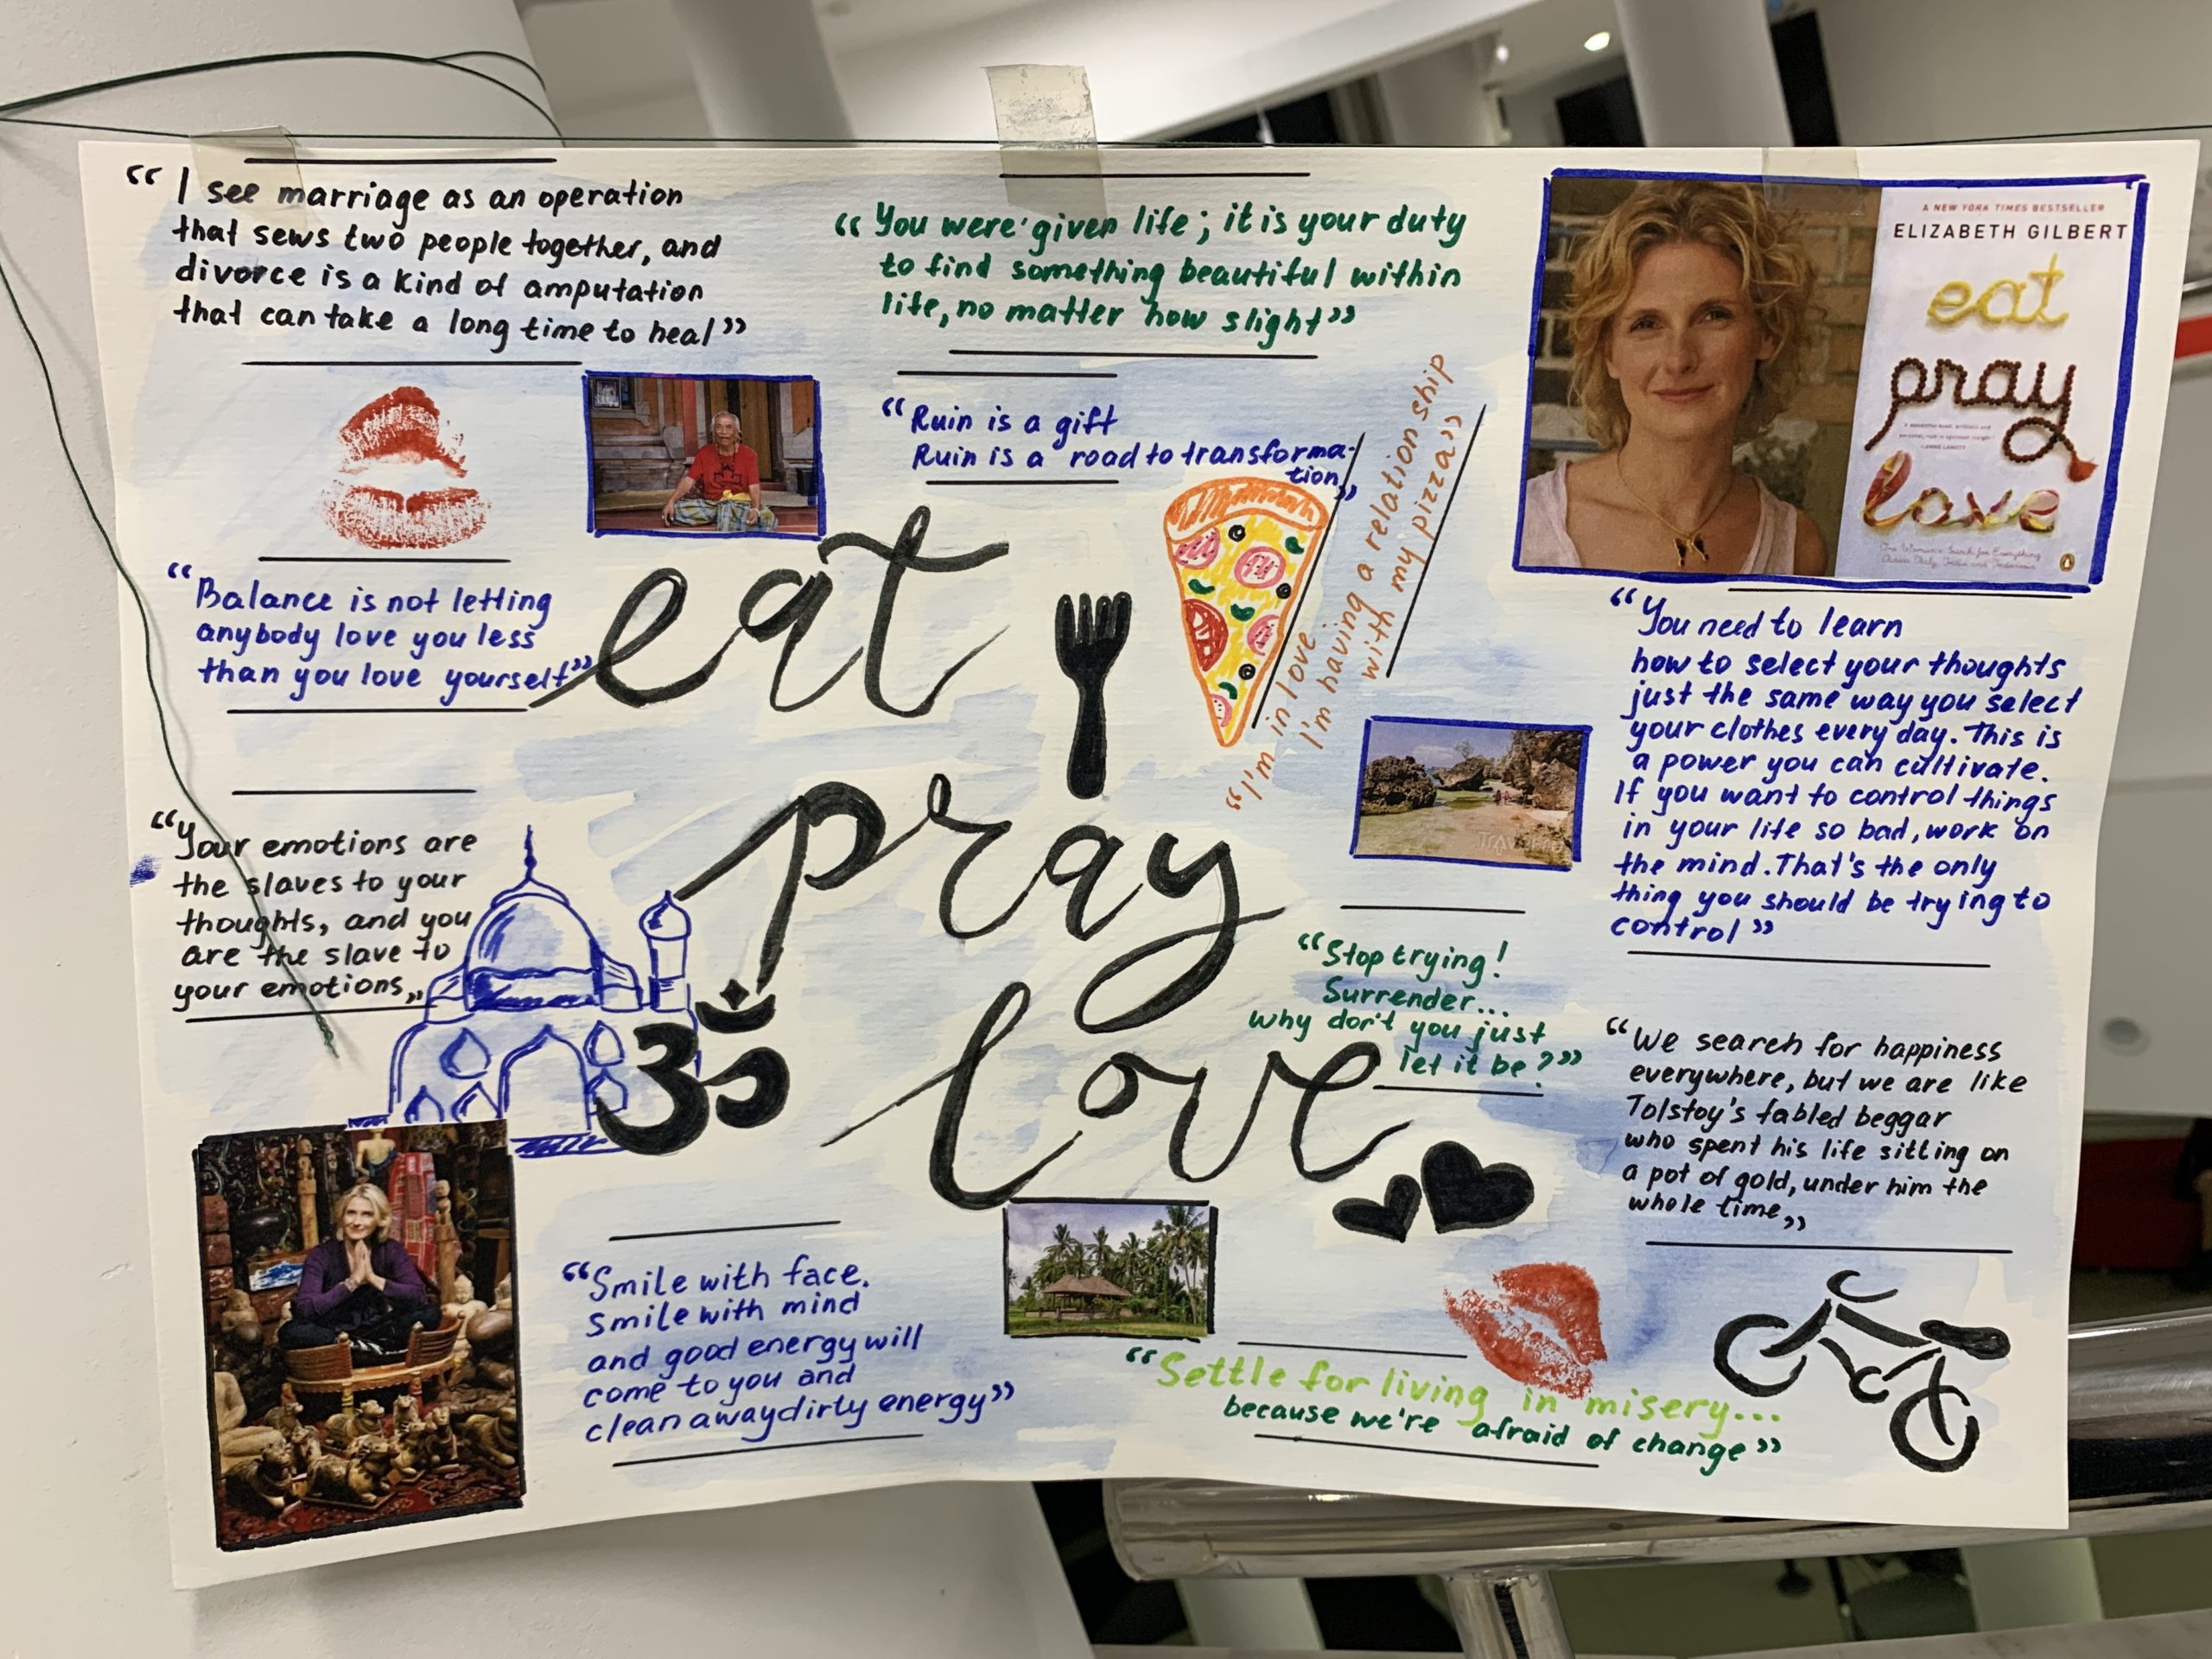 “I see marriage as an operation
that sews two people together, and
divorce is a kind of amputation
that can take a long time to heal”
“You were given life; it is your duty
to find something beautiful within
life, no matter how slight”
A NEW YORK TIMES BESTSELLER
ELIZABETH GILBERT
eat
pray
love
“Ruin is a gift
Ruin is a road to transforma-
tion”
“I'm in love
I'm having a relationship
with my pizza”
“Balance is not letting
anybody love you less
than you love yourself”
eat
pray
love
“You need to learn
how to select your thoughts
just the same way you select
your clothes every day. This is
a power you can cultivate.
If you want to control things
in your life so bad, work on
the mind. That's the only
thing you should be trying to
control”
“Your emotions are
the slaves to your
thoughts, and you
are the slave to
your emotions„
ॐ
“Stop trying!
Surrender...
why don't you just
let it be?”
“We search for happiness
everywhere, but we are like
Tolstoy's fabled beggar
who spent his life sitting on
a pot of gold, under him the
whole time„
“Smile with face.
Smile with mind
and good energy will
come to you and
clean away dirty energy”
“Settle for living in misery...
because we're afraid of change”